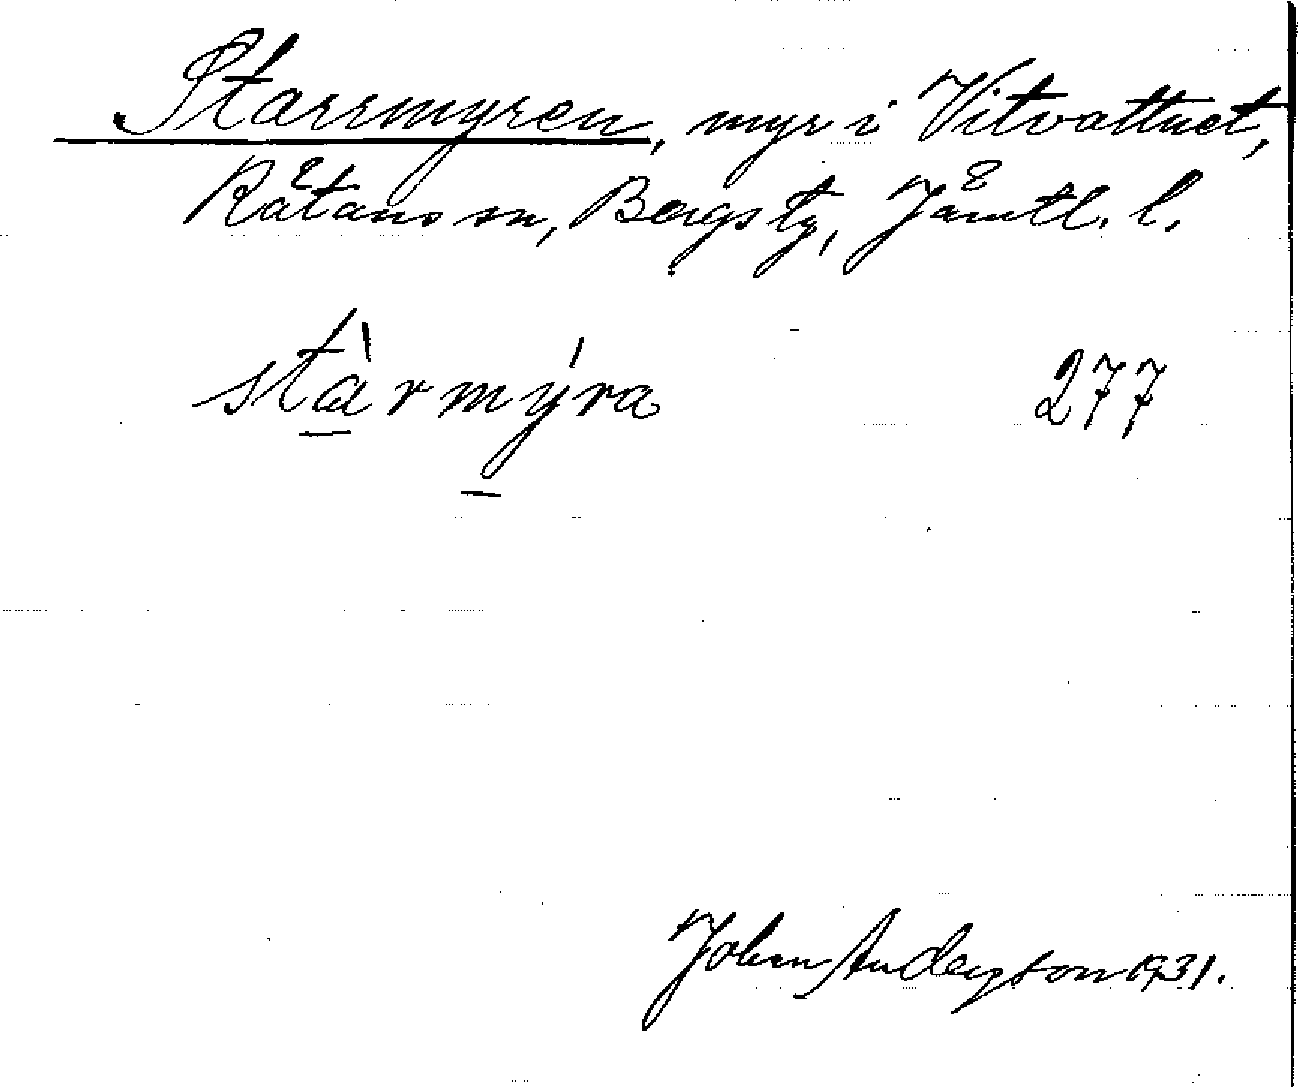 Starrmyren, myr i Vitvattnet,
Råtans sn, Bergs tg, Jämtl. l.
stàrmýra 277
John Andersson 1931.